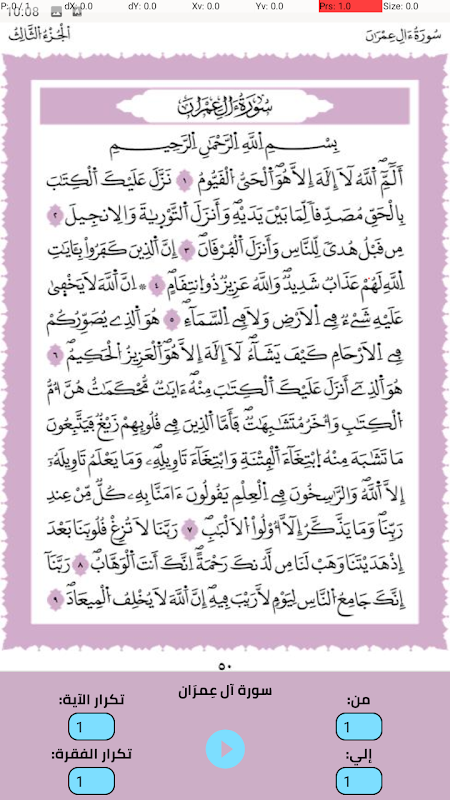 P: 0 / 1 dX: 0.0 dY: 0.0 Xv: 0.0 Yv: 0.0 Prs: 1.0 Size: 0.0
10:08
سُورَةُ ءَالِ عِمْرَان الْجُزْءُ الثَّالِثُ
سُورَةُ ءَالِ عِمْرَان
بِسْمِ اللَّهِ الرَّحْمَٰنِ الرَّحِيمِ
أَلَٓمِّٓۖ اَ۬للَّهُ لَآ إِلَٰهَ إِلَّا هُوَ اَ۬لْحَيُّ اَ۬لْقَيُّومُۖ ١ نَزَّلَ عَلَيْكَ اَ۬لْكِتَٰبَ
بِالْحَقِّ مُصَدِّقاٗ لِّمَا بَيْنَ يَدَيْهِۖ وَأَنزَلَ اَ۬لتَّوْر۪يٰةَ وَالِانجِيلَ ٢
مِن قَبْلُ هُديٗ لِّلنَّاسِ وَأَنزَلَ اَ۬لْفُرْقَانَۖ ٣ إِنَّ اَ۬لذِينَ كَفَرُواْ بِـَٔايَٰتِ
اِ۬للَّهِ لَهُمْ عَذَابٞ شَدِيدٞۖ وَاللَّهُ عَزِيزٞ ذُو اُ۪نتِقَامٍۖ ٤ ۞ اِنَّ اَ۬للَّهَ لَا يَخْف۪ىٰ
عَلَيْهِ شَےْءٞ فِے اِ۬لَارْضِ وَلَا فِے اِ۬لسَّمَآءِۖ ٥ هُوَ اَ۬لذِے يُصَوِّرُكُمْ
فِے اِ۬لَارْحَامِ كَيْفَ يَشَآءُۖ لَآ إِلَٰهَ إِلَّا هُوَ اَ۬لْعَزِيزُ اُ۬لْحَكِيمُۖ ٦
هُوَ اَ۬لذِےٓ أَنزَلَ عَلَيْكَ اَ۬لْكِتَٰبَ مِنْهُ ءَايَٰتٞ مُّحْكَمَٰتٌ هُنَّ أُمُّ
اُ۬لْكِتَٰبِ وَأُخَرُ مُتَشَٰبِهَٰتٞۖ فَأَمَّا اَ۬لذِينَ فِے قُلُوبِهِمْ زَيْغٞ فَيَتَّبِعُونَ
مَا تَشَٰبَهَ مِنْهُ اُ۪بْتِغَآءَ اَ۬لْفِتْنَةِ وَابْتِغَآءَ تَاوِيلِهِۦۖ وَمَا يَعْلَمُ تَاوِيلَهُۥٓ
إِلَّا اَ۬للَّهُۖ وَالرَّٰسِخُونَ فِے اِ۬لْعِلْمِ يَقُولُونَ ءَامَنَّا بِهِۦ كُلّٞ مِّنْ عِندِ
رَبِّنَاۖ وَمَا يَذَّكَّرُ إِلَّآ أُوْلُواْ اُ۬لَالْبَٰبِۖ ٧ رَبَّنَا لَا تُزِغْ قُلُوبَنَا بَعْدَ
إِذْ هَدَيْتَنَا وَهَبْ لَنَا مِن لَّدُنكَ رَحْمَةًۖ اِنَّكَ أَنتَ اَ۬لْوَهَّابُۖ ٨ رَبَّنَآ
إِنَّكَ جَامِعُ اُ۬لنَّاسِ لِيَوْمٖ لَّا رَيْبَ فِيهِۖ إِنَّ اَ۬للَّهَ لَا يُخْلِفُ اُ۬لْمِيعَادَۖ ٩
٥٠
سورة آل عِمرَان
من: تكرار الآية:
1 1
إلي: تكرار الفقرة:
1 1